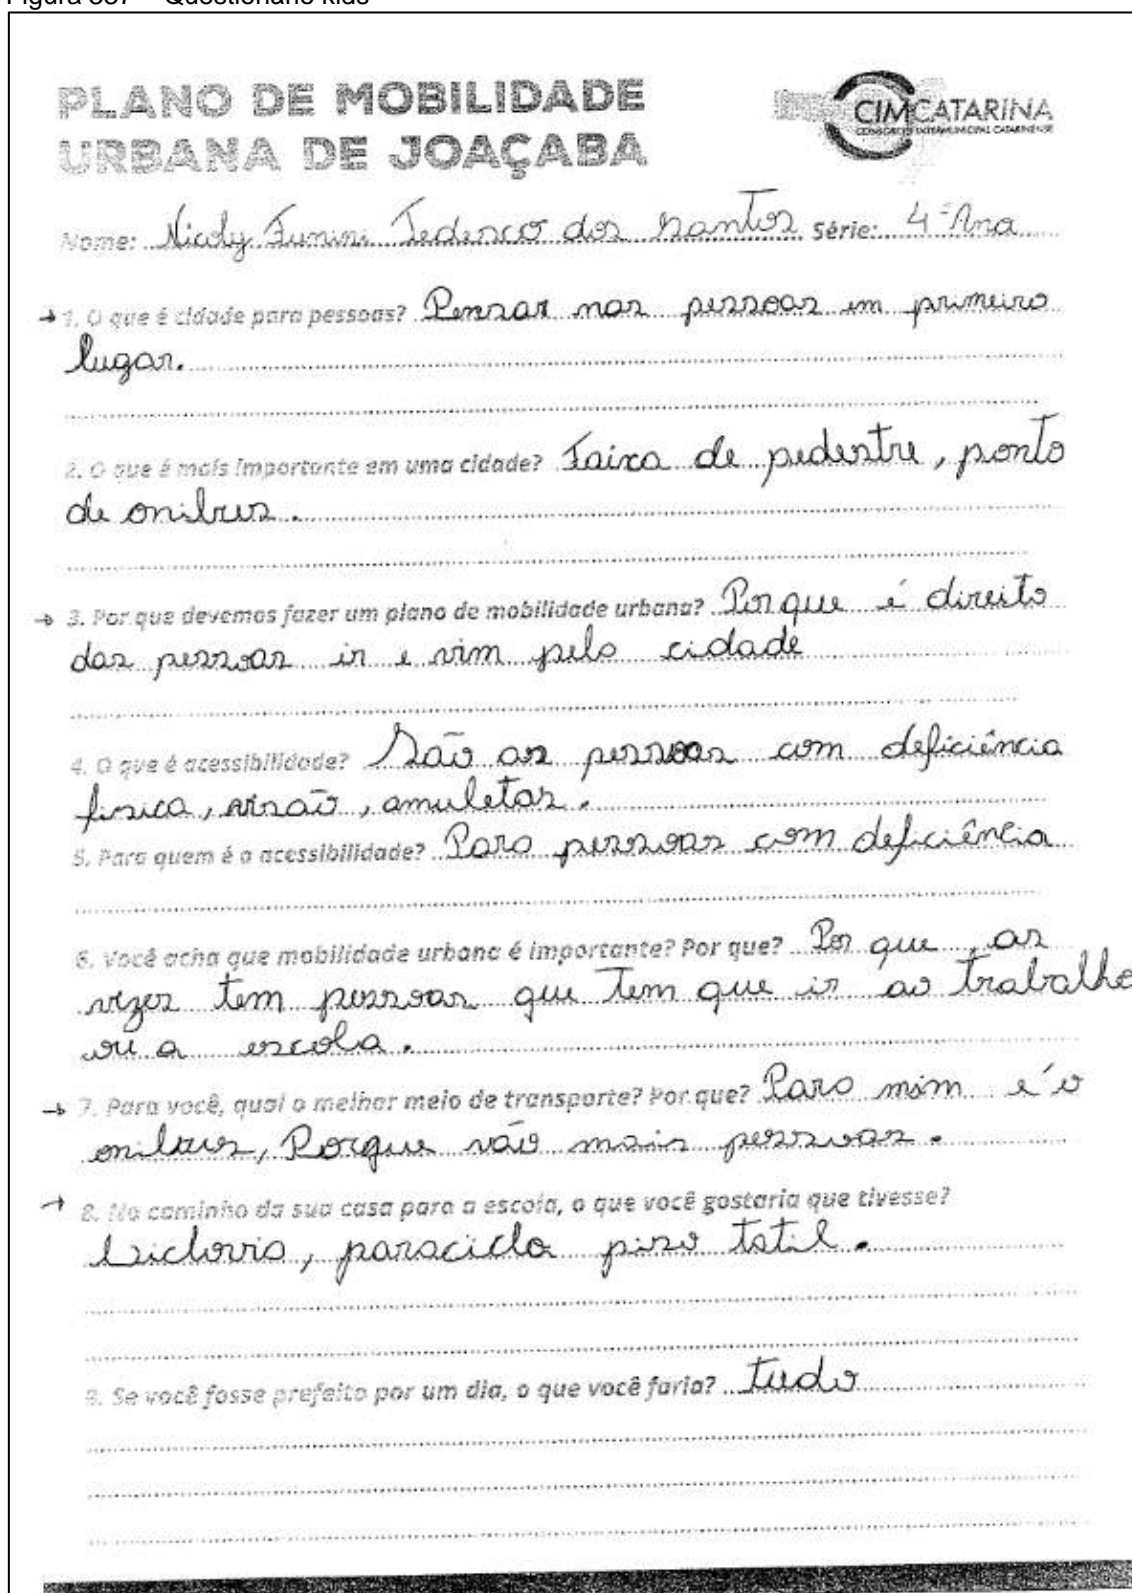 Figura 887 – Questionário kids
PLANO DE MOBILIDADE
URBANA DE JOAÇABA
CIMCATARINA
CONSÓRCIO INTERMUNICIPAL CATARINENSE
Nome: Nicoly Tedesco dos Santos Série: 4º Ano
1. O que é cidade para pessoas? Pensar nas pessoas em primeiro
lugar.
2. O que é mais importante em uma cidade? Faixa de pedestre, ponto
de onibus.
3. Por que devemos fazer um plano de mobilidade urbana? Por que é direito
das pessoas ir e vim pela cidade
4. O que é acessibilidade? São as pessoas com deficiência
fisica, visão, amuletas.
5. Para quem é a acessibilidade? Para pessoas com deficiência
6. Você acha que mobilidade urbana é importante? Por que? Por que as
vezes tem pessoas que tem que ir ao trabalho
ou a escola.
7. Para você, qual o melhor meio de transporte? Por que? Para mim é o
onibus, Porque vão mais pessoas.
8. No caminho da sua casa para a escola, o que você gostaria que tivesse?
biclovia, paraciclo piso tatil.
9. Se você fosse prefeito por um dia, o que você faria? tudo